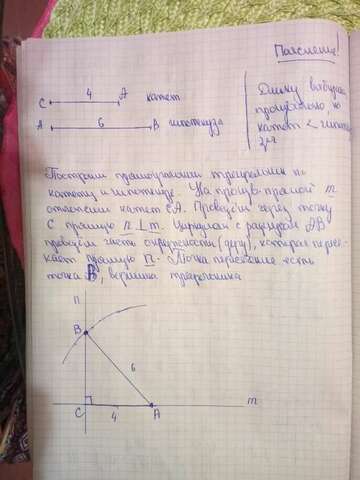 Пояснение!
4
C A катет
6
A B гипотенуза
Длину выбираем
произвольно, но
катет < гипотену
зы
Построим прямоугольный треугольник по
катету и гипотенузе. На произв. прямой m
отложим катет CA. Проведём через точку
C прямую n ⊥ m. Циркулем с радиусом AB
проведём часть окружности (дугу), которая пересе-
кает прямую n. Точка пересечения есть
точка B, вершина треугольника
n
B
6
C 4 A m